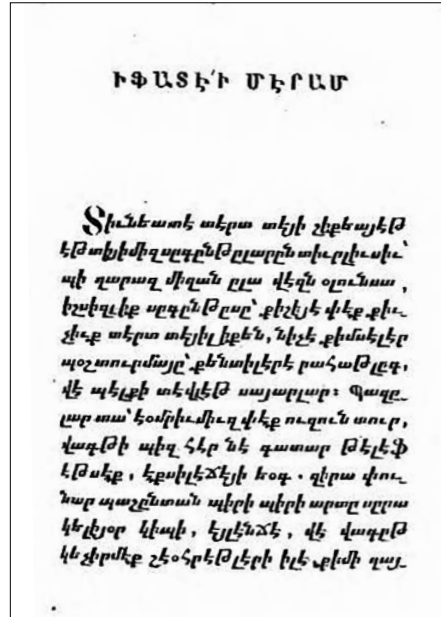 ԻՖԱՏԷ՛Ի ՄԷՐԱՄ
Տիւնեատէ տէրտ տէյի շիքեայէթ
էթտիյիմիզ սըգընթըլարըն տիւրլիւսիւ՝
պի ղարազ միզան ըլա վէզն օլունսա,
իշսիզլիք սըգընթըսը՝ քիշիյէ փէք քիւ-
չիւք տէրտ տէյիլ իքեն, նիչէ քիմսէլէր
պօշտուրմայը՝ քենտիլէրէ րահաթլըգ,
վէ պէլքի տէվլէթ սայարլար։ Պազը-
լար տա՝ էօմրիւմիւզ փէք ուզուն տուր,
վագթի պիզ հէր նէ գատար թէլէֆ
էթսէք, էքսիլէճէյի եօգ. զիրա փու-
նար պաշընտան պիրի պիրի արտը սըրա
կելիյօր կիպի, էյլէնճէ, վէ վագըթ
կեչիրմէք շէօհրէթլէրի իլէ, քիմի ղայ-